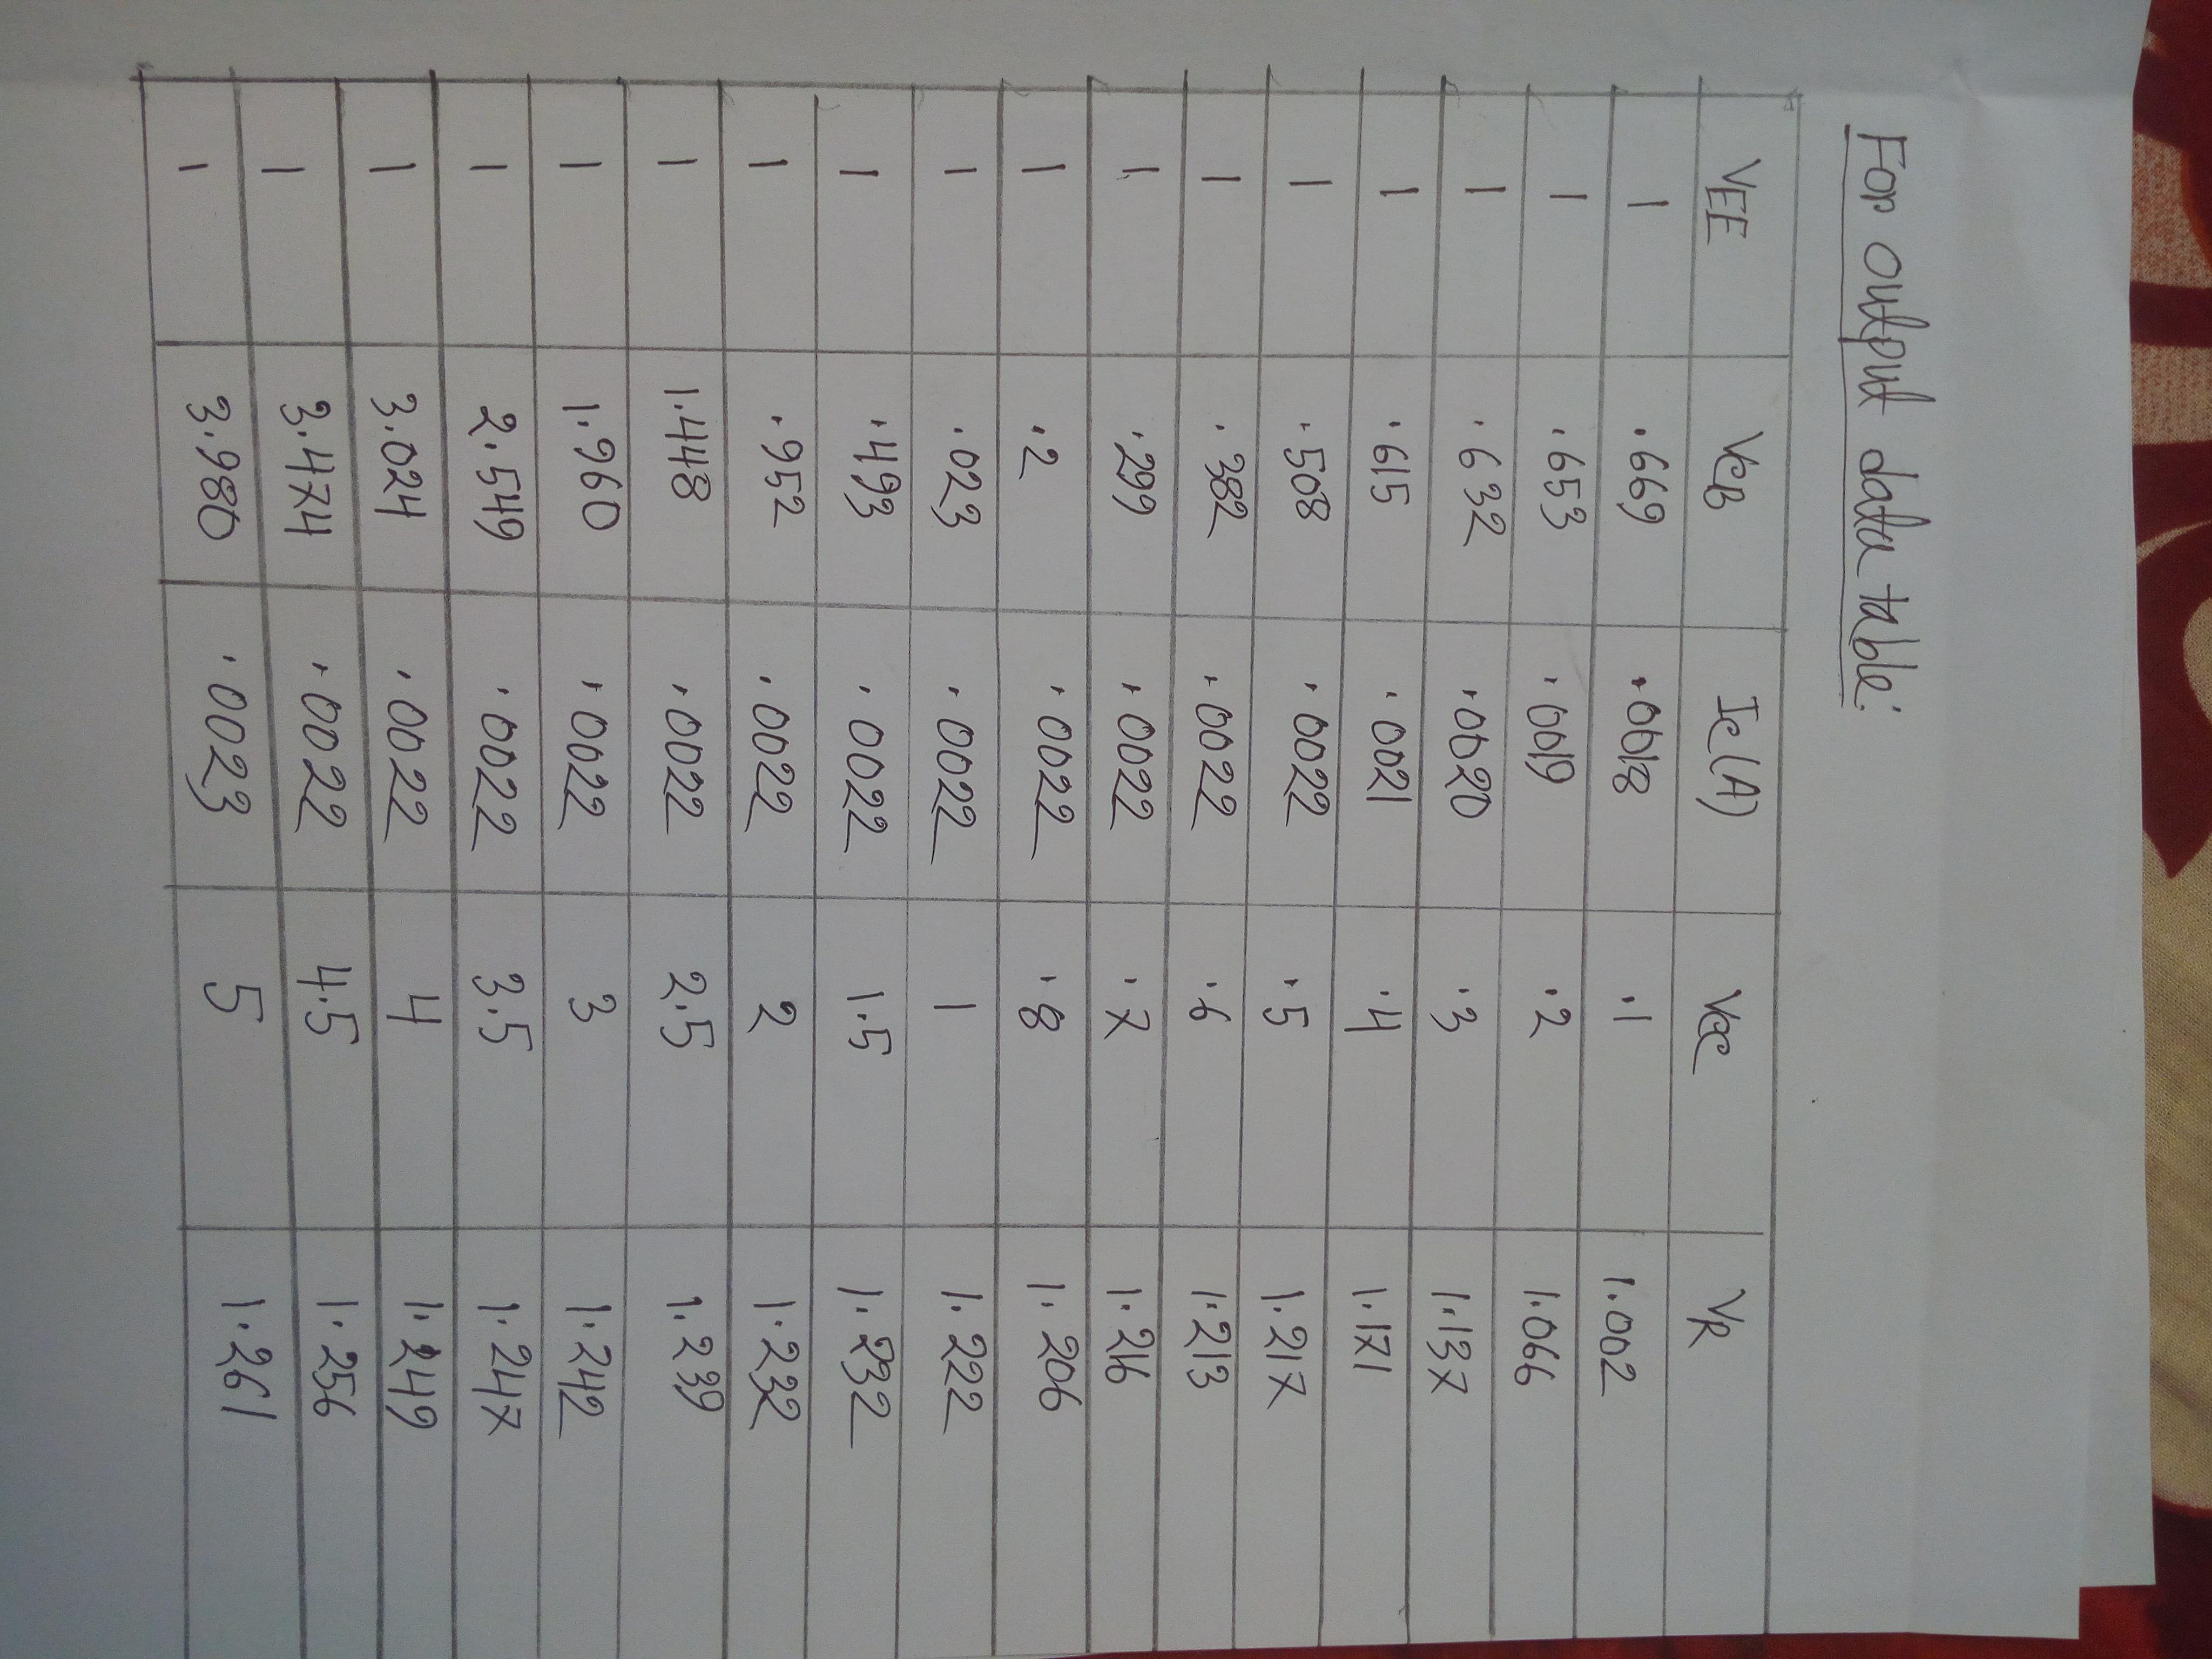 For output data table:
VEE VCB Ic(A) Vcc VR
1 .669 .0018 .1 1.002
1 .653 .0019 .2 1.066
1 .632 .0020 .3 1.137
1 .615 .0021 .4 1.171
1 .508 .0022 .5 1.217
1 .382 .0022 .6 1.213
1 .299 .0022 .7 1.216
1 .2 .0022 .8 1.206
1 .023 .0022 1 1.222
1 .493 .0022 1.5 1.232
1 .952 .0022 2 1.232
1 1.448 .0022 2.5 1.239
1 1.960 .0022 3 1.242
1 2.549 .0022 3.5 1.247
1 3.024 .0022 4 1.249
1 3.474 .0022 4.5 1.256
1 3.980 .0023 5 1.261